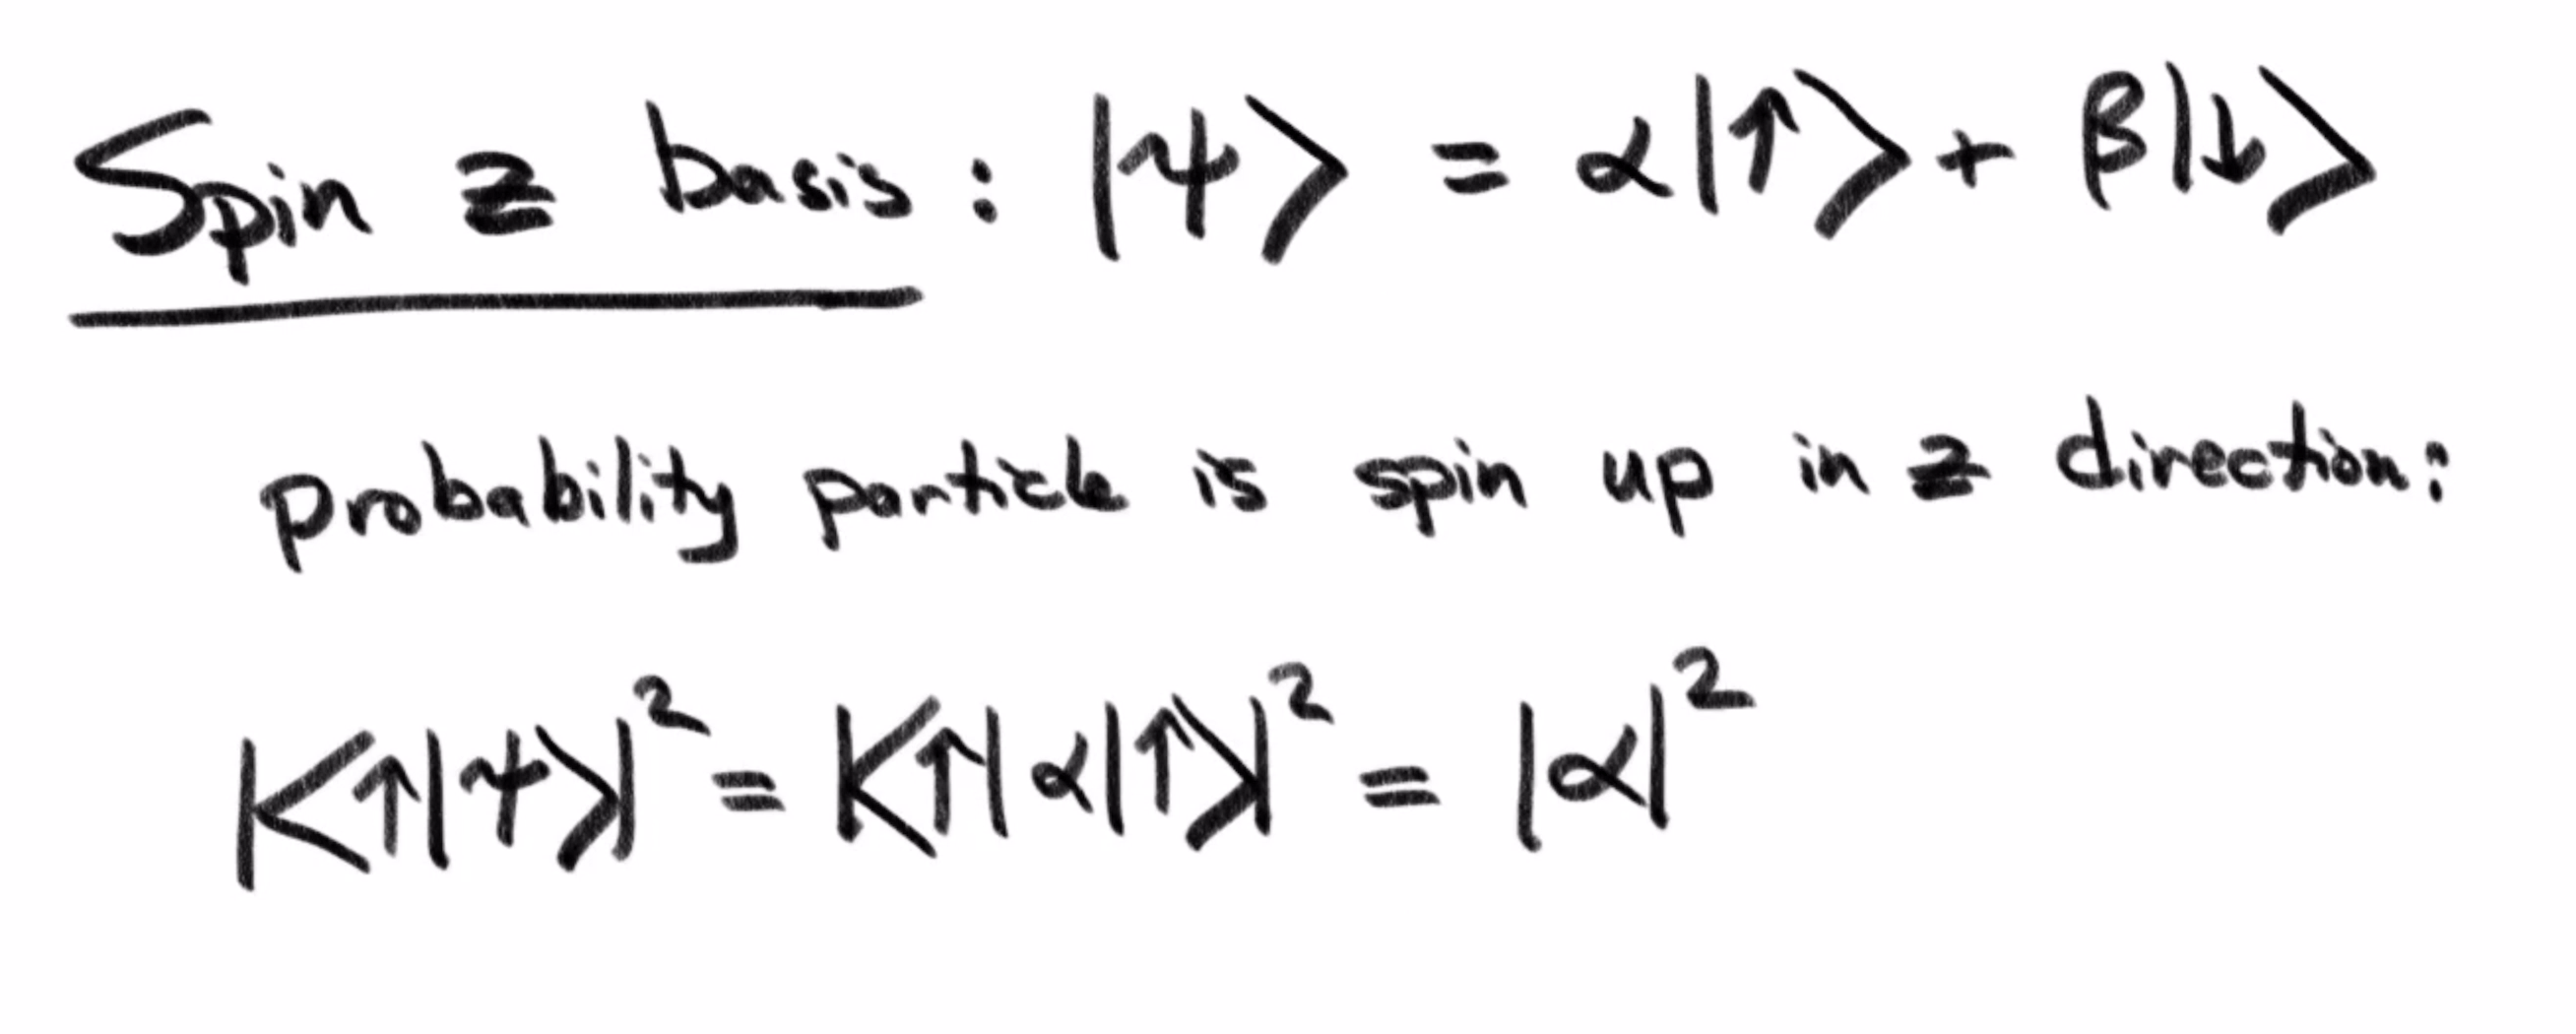 Spin z basis: |ψ⟩ = α|↑⟩ + β|↓⟩
probability particle is spin up in z direction:
|⟨↑|ψ⟩|² = |⟨↑|α|↑⟩|² = |α|²